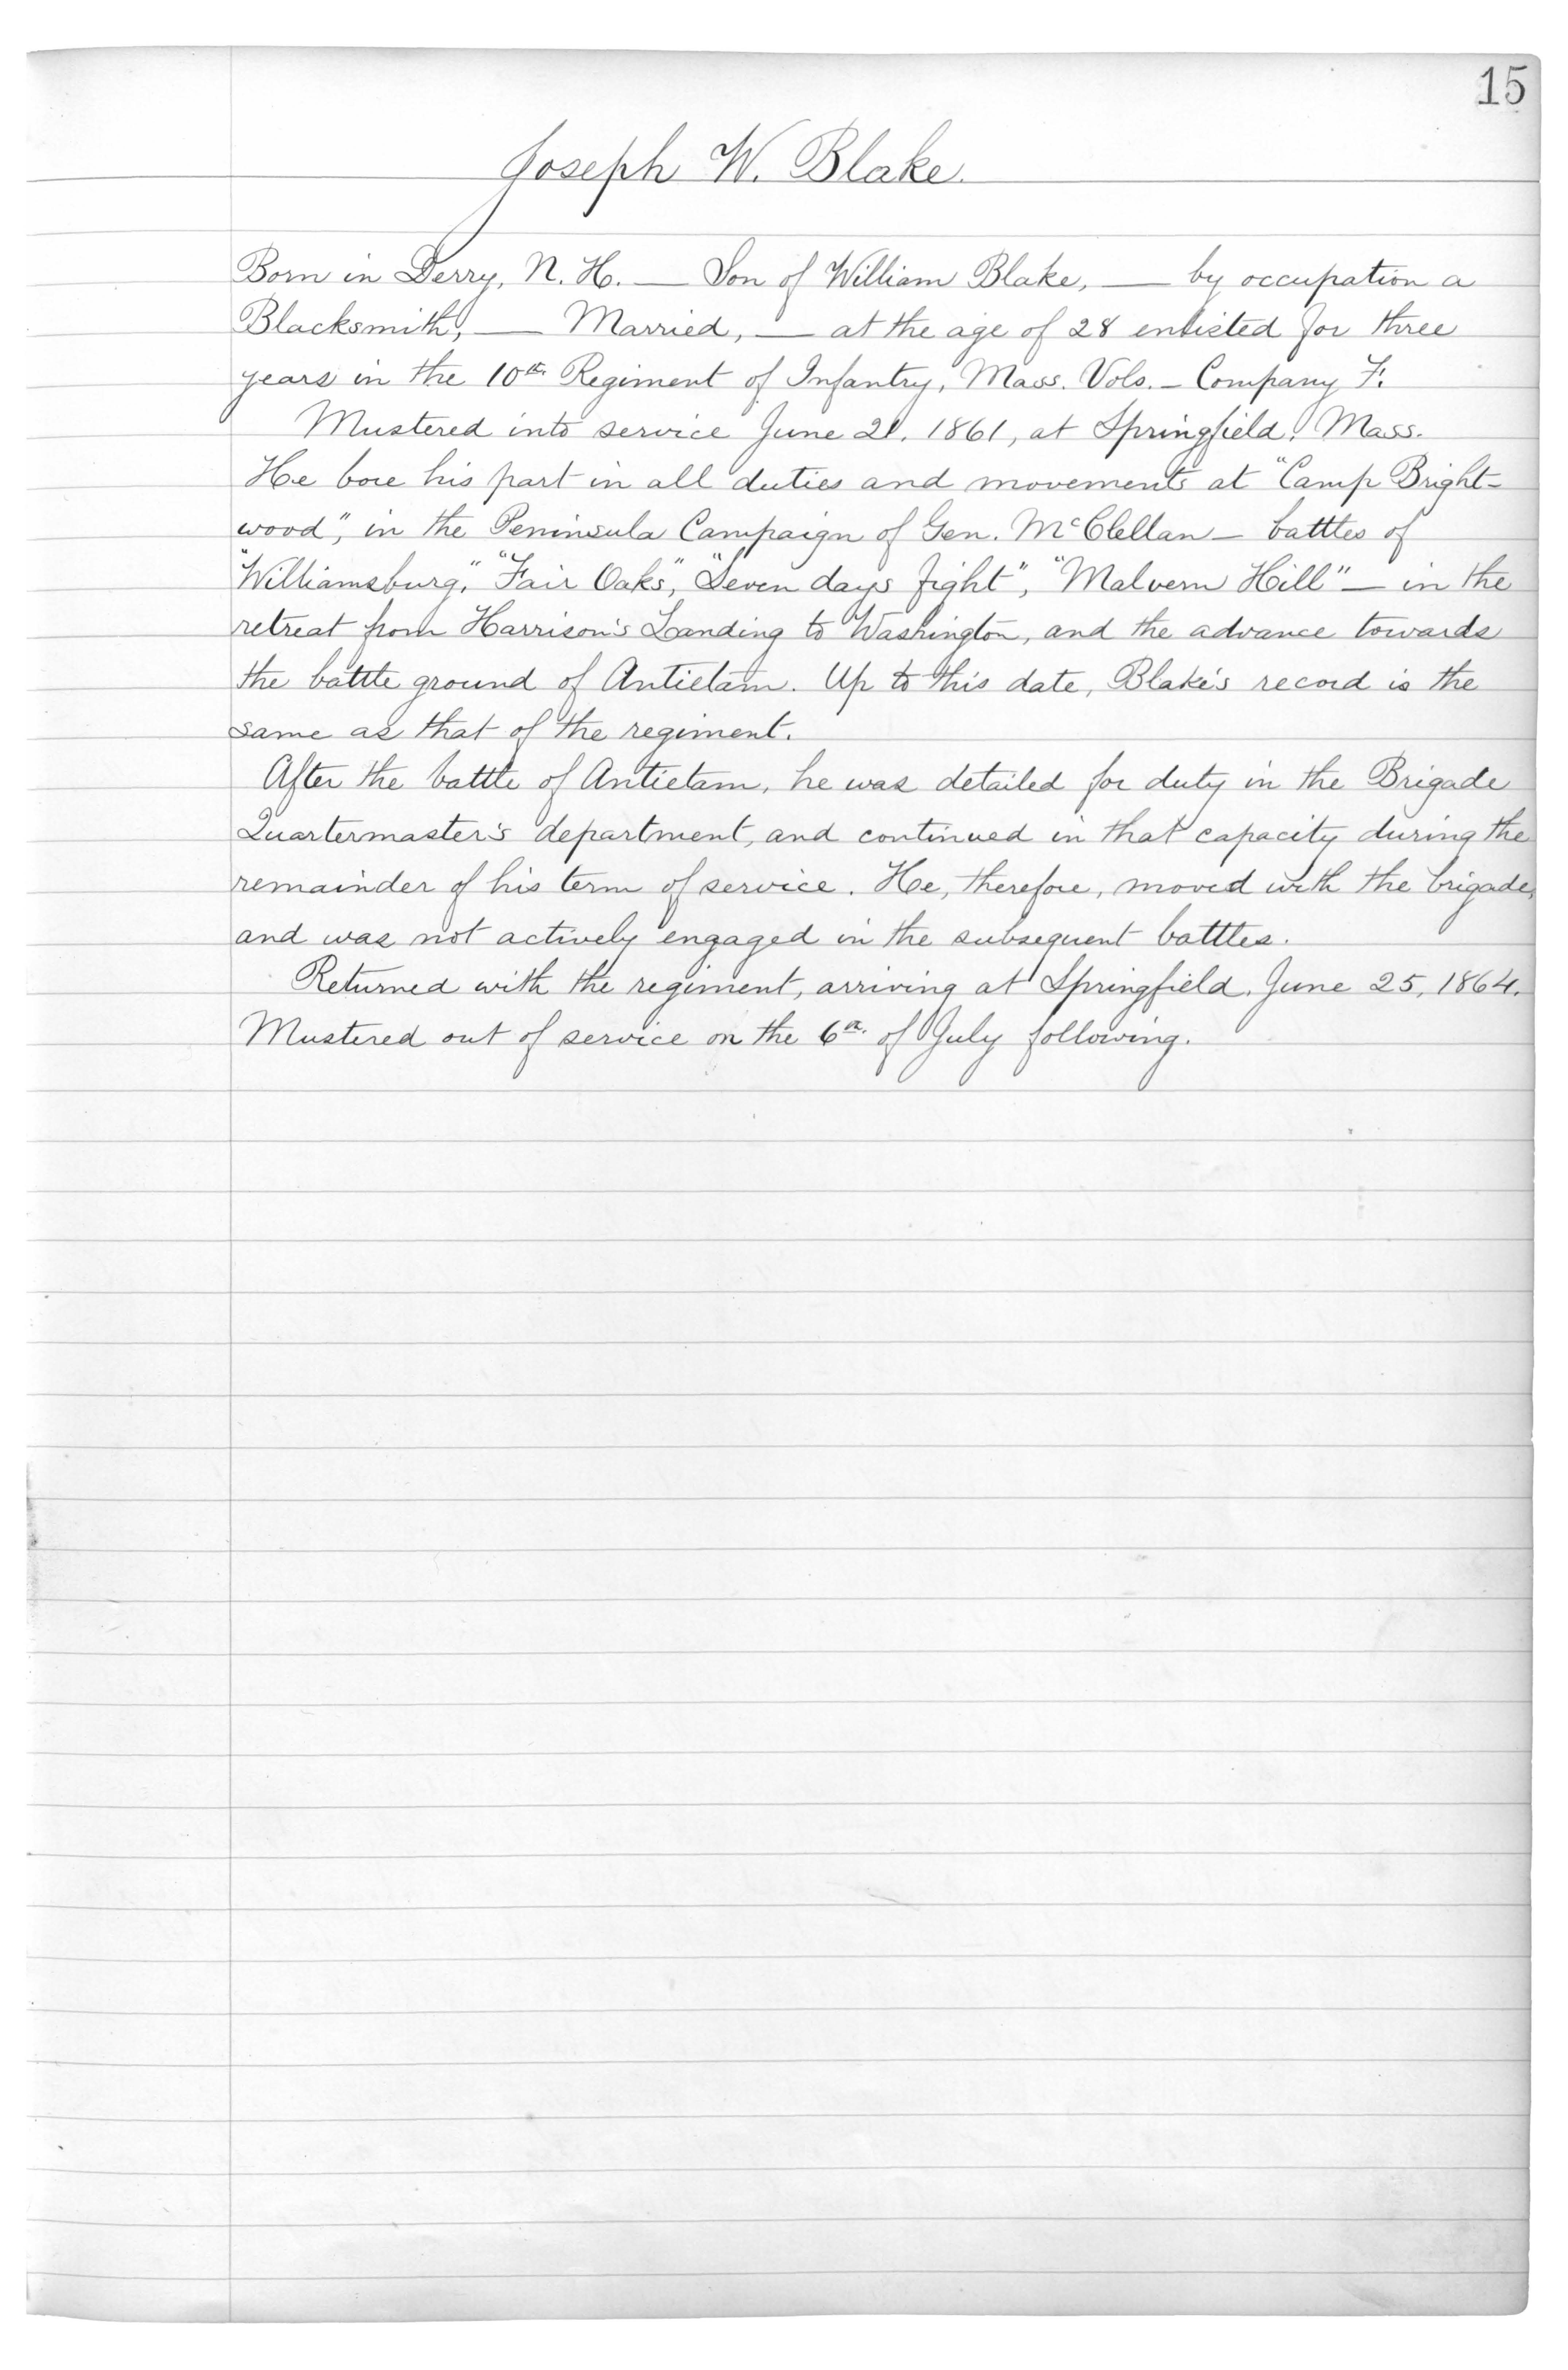 15
Joseph W. Blake.
Born in Derry, N. H. — Son of William Blake, — by occupation a
Blacksmith, — Married, — at the age of 28 enlisted for three
years in the 10th. Regiment of Infantry, Mass. Vols. – Company F.
Mustered into service June 21, 1861, at Springfield, Mass.
He bore his part in all duties and movements at "Camp Bright-
wood", in the Peninsula Campaign of Gen. McClellan – battles of
"Williamsburg," "Fair Oaks", "Seven days fight", "Malvern Hill" – in the
retreat from Harrison's Landing to Washington, and the advance towards
the battle ground of Antietam. Up to this date, Blake's record is the
same as that of the regiment.
After the battle of Antietam, he was detailed for duty in the Brigade
Quartermaster's department, and continued in that capacity during the
remainder of his term of service. He, therefore, moved with the brigade,
and was not actively engaged in the subsequent battles.
Returned with the regiment, arriving at Springfield, June 25, 1864.
Mustered out of service on the 6th. of July following.